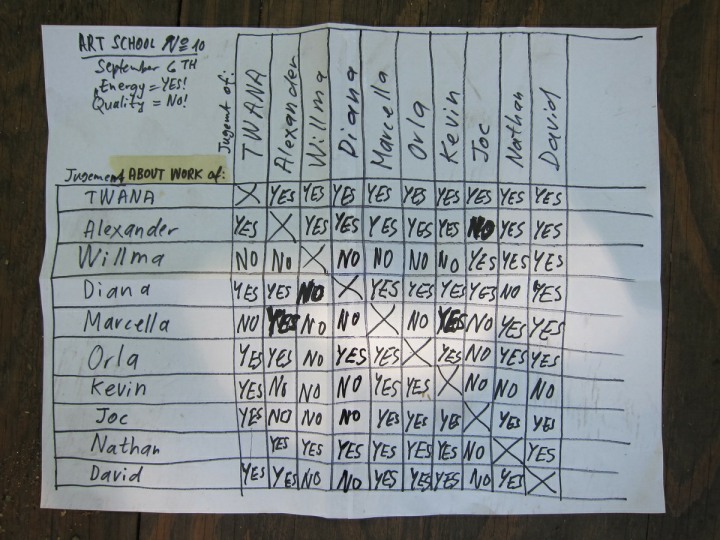 ART SCHOOL No 10
September 6 TH
Energy = YES!
Quality = NO!
Jugemt of:
TWANA Alexander Willma Diana Marcella Orla Kevin Joc Nathan David
Jugement ABOUT WORK of:
TWANA X YES YES YES YES YES YES YES YES YES
Alexander YES X YES YES YES YES YES NO YES YES
Willma NO NO X NO NO NO NO YES YES YES
Diana YES YES NO X YES YES YES YES NO YES
Marcella NO YES NO NO X NO YES NO YES YES
Orla YES YES NO YES YES X YES NO YES YES
Kevin YES NO NO NO YES YES X NO NO NO
Joc YES NO NO NO YES YES YES X YES YES
Nathan YES YES YES YES YES YES NO X YES
David YES YES NO NO YES YES YES NO YES X